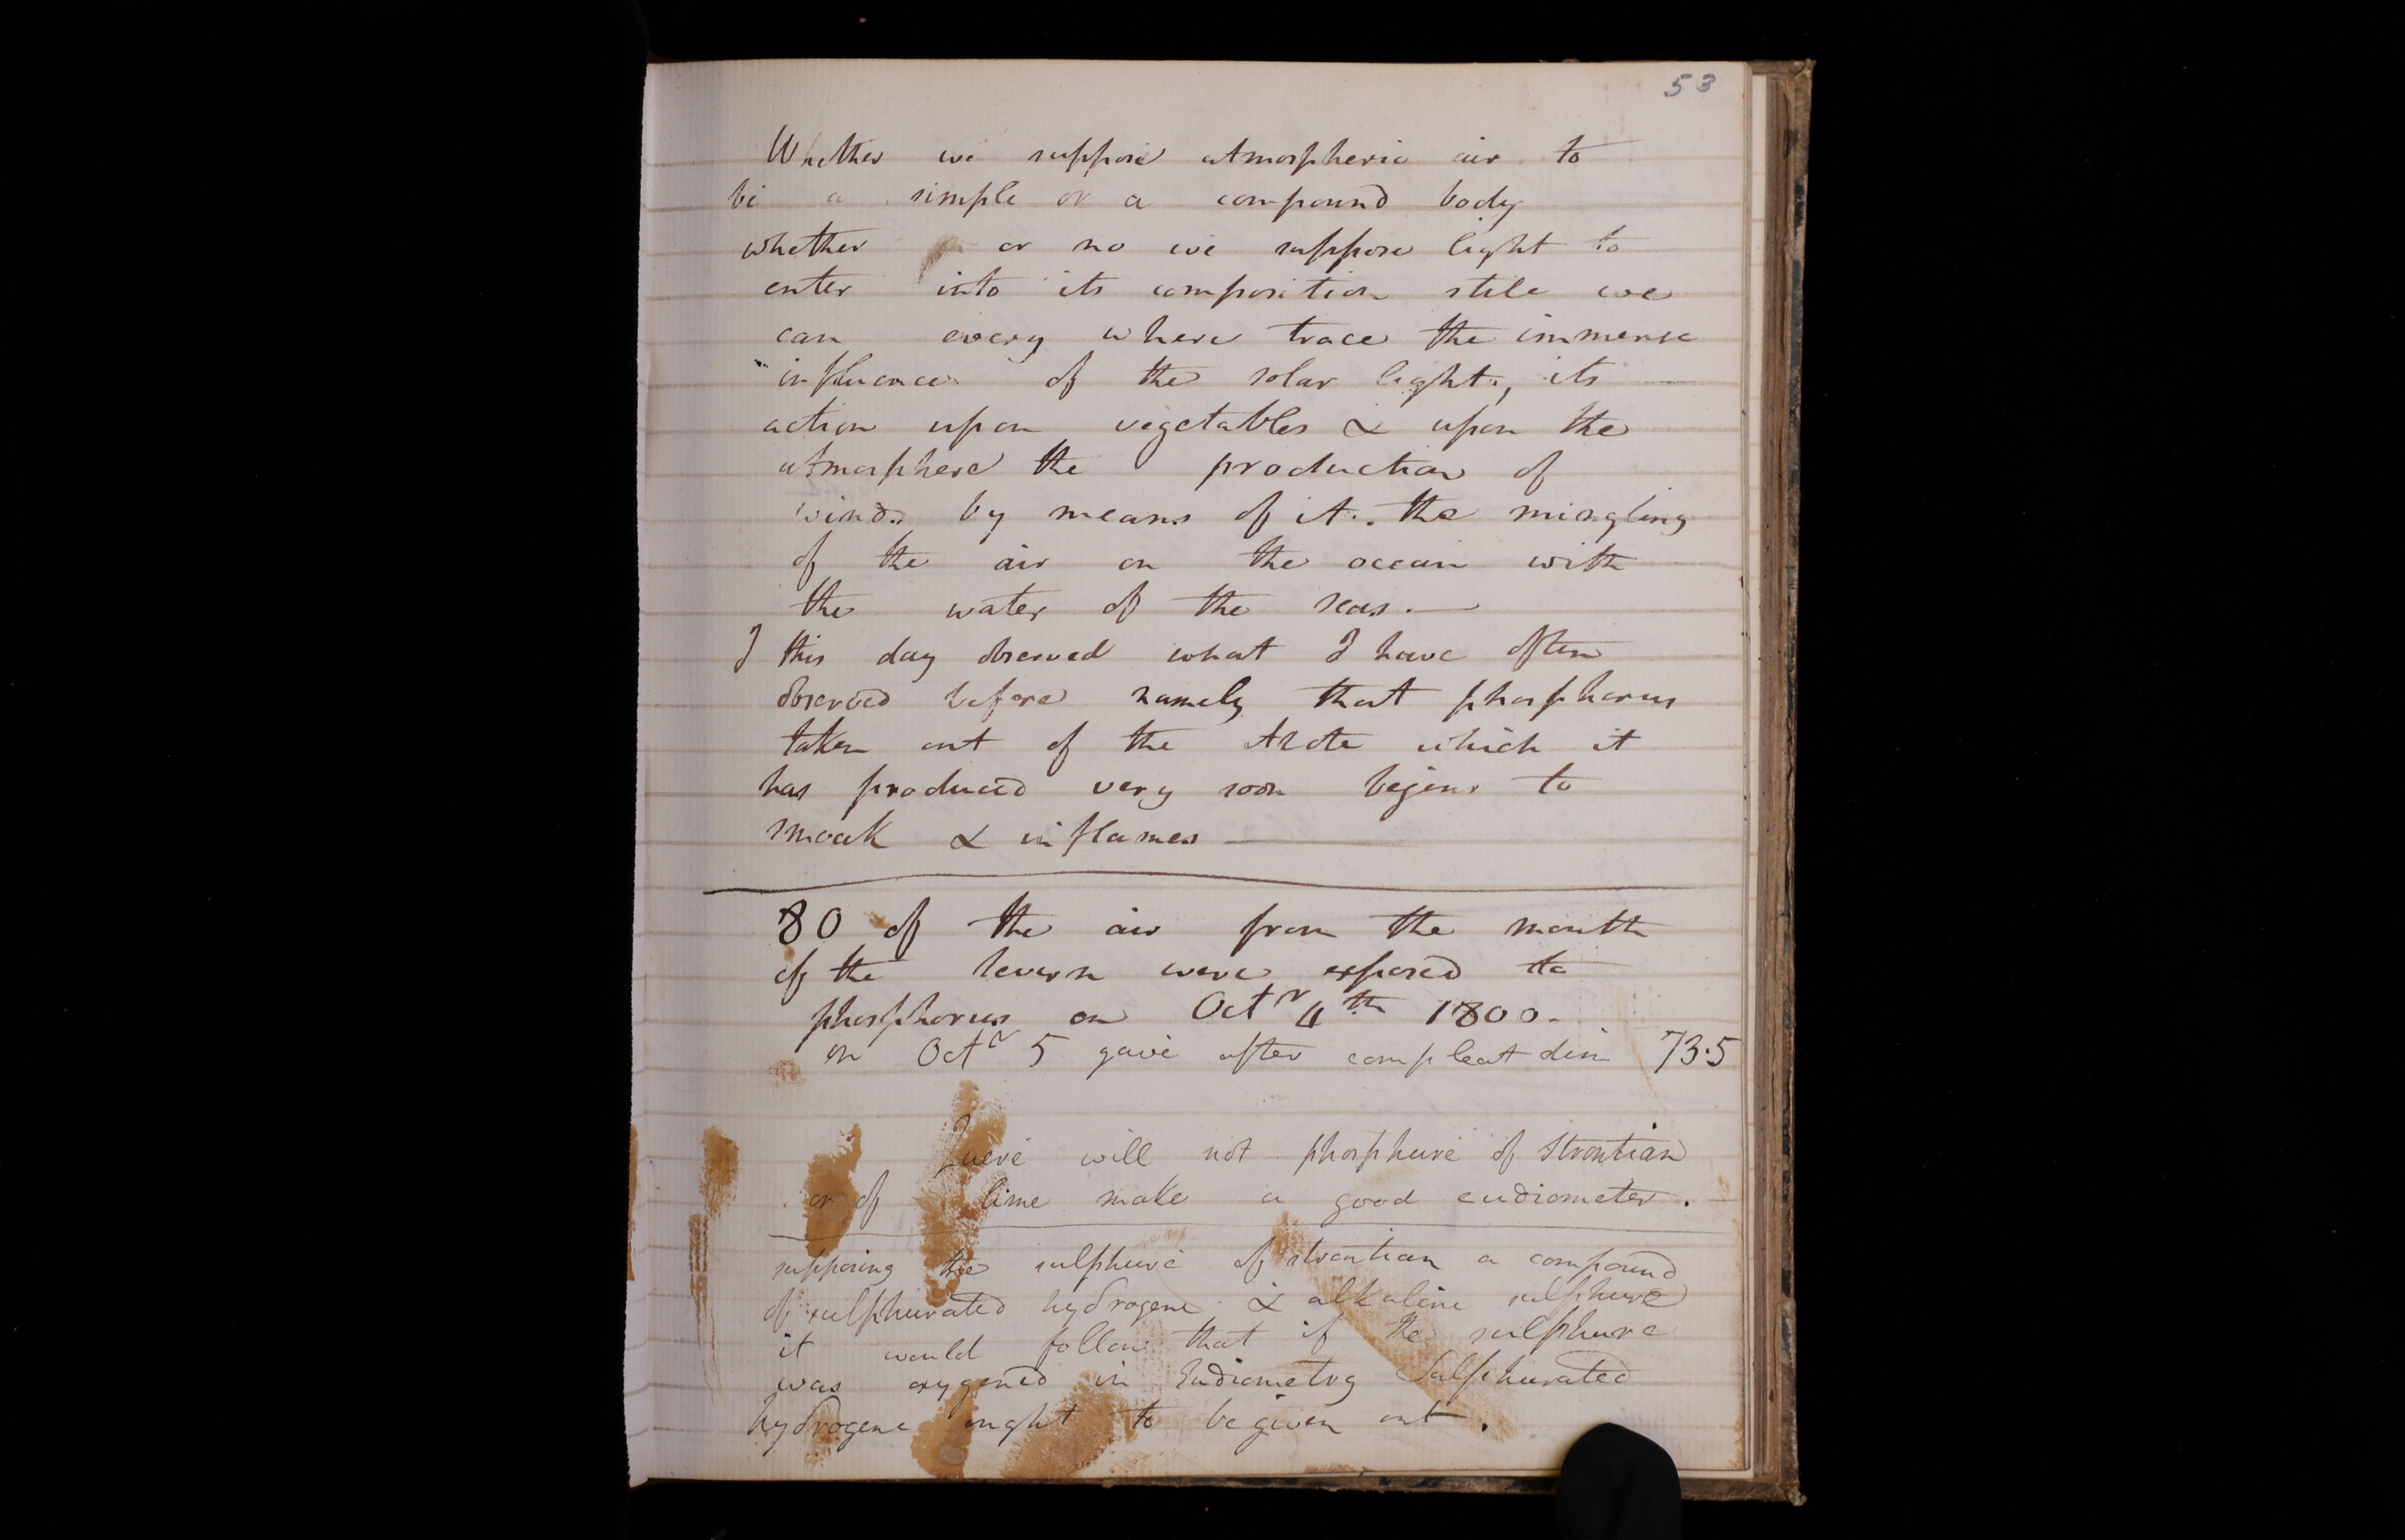 53
Whether we suppose atmospheric air to
be a simple or a compound body
whether or no we suppose light to
enter into its composition still we
can every where trace the immense
influence of the solar light, its
action upon vegetables & upon the
atmosphere the production of
winds by means of it. the mingling
of the air on the ocean with
the water of the seas. —
I this day observed what I have often
observed before namely that phosphorus
taken out of the Azote which it
has produced very soon begins to
smoak & inflames —
80 of the air from the mouth
of the Severn were exposed to
phosphorus on Octr 4th 1800.
on Octr 5 gave after compleat dim 73.5
Quere will not phosphure of Strontian
or of lime make a good eudiometer.
supposing the sulphure of strontian a compound
of sulphurated hydrogene & alkaline sulphure
it would follow that if the sulphure
was oxygened in Eudiometry Sulphurated
hydrogene ought to be given out.